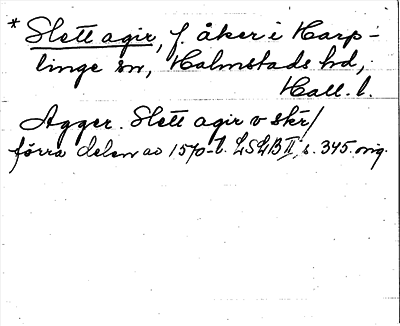 * Slett agir, f. åker i Harp-
linge sn, Halmstads hd,
Hall. l.
Agger. Slett agir v skr/
förra delen av 1570-t. LSLB II, s. 345. orig.